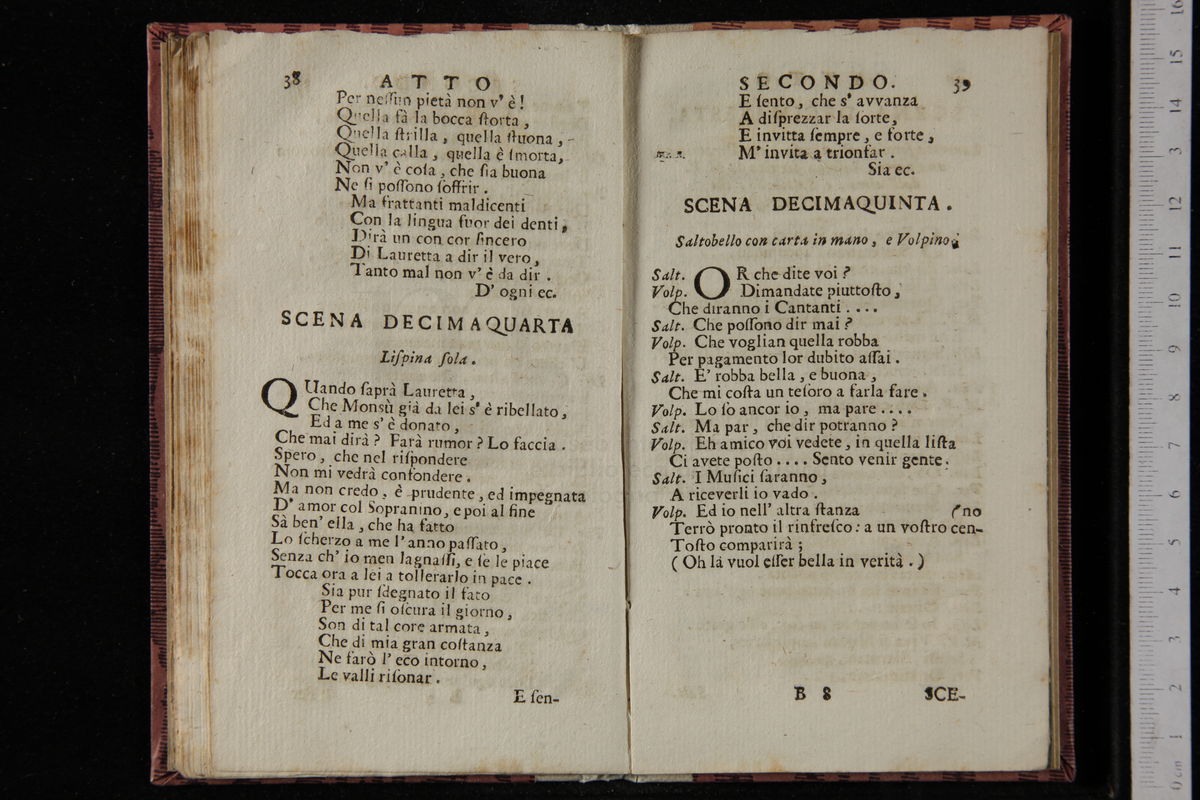 38 ATTO
Per neſſun pietà non v' è!
Quella fà la bocca ſtorta,
Quella ſtrilla, quella ſtuona,
Quella calla, quella è ſmorta,
Non v' è coſa, che ſia buona
Ne ſi poſſono ſoffrir.
Ma frattanti maldicenti
Con la lingua fuor dei denti,
Dirà un con cor ſincero
Di Lauretta a dir il vero,
Tanto mal non v' è da dir.
D' ogni ec.
SCENA DECIMAQUARTA
Liſpina ſola.
QUando ſaprà Lauretta,
Che Monsù già da lei s' è ribellato,
Ed a me s' è donato,
Che mai dirà? Farà rumor? Lo faccia.
Spero, che nel riſpondere
Non mi vedrà confondere.
Ma non credo, è prudente, ed impegnata
D' amor col Sopranino, e poi al fine
Sà ben' ella, che ha fatto
Lo ſcherzo a me l' anno paſſato,
Senza ch' io men lagnaſſi, e ſe le piace
Tocca ora a lei a tollerarlo in pace.
Sia pur ſdegnato il fato
Per me ſi oſcura il giorno,
Son di tal core armata,
Che di mia gran coſtanza
Ne farò l' eco intorno,
Le valli riſonar.
E ſen-
SECONDO. 39
E ſento, che s' avvanza
A diſprezzar la ſorte,
E invitta ſempre, e forte,
M' invita a trionfar.
Sia ec.
SCENA DECIMAQUINTA.
Saltobello con carta in mano, e Volpino.
Salt. OR che dite voi?
Volp. Dimandate piuttoſto,
Che diranno i Cantanti....
Salt. Che poſſono dir mai?
Volp. Che voglian quella robba
Per pagamento lor dubito aſſai.
Salt. E' robba bella, e buona,
Che mi coſta un teſoro a farla fare.
Volp. Lo ſò ancor io, ma pare....
Salt. Ma par, che dir potranno?
Volp. Eh amico voi vedete, in quella liſta
Ci avete poſto.... Sento venir gente.
Salt. I Muſici ſaranno,
A riceverli io vado.
Volp. Ed io nell' altra ſtanza (no
Terrò pronto il rinfreſco: a un voſtro cen-
Toſto comparirà;
(Oh là vuol eſſer bella in verità.)
B 8 SCE-